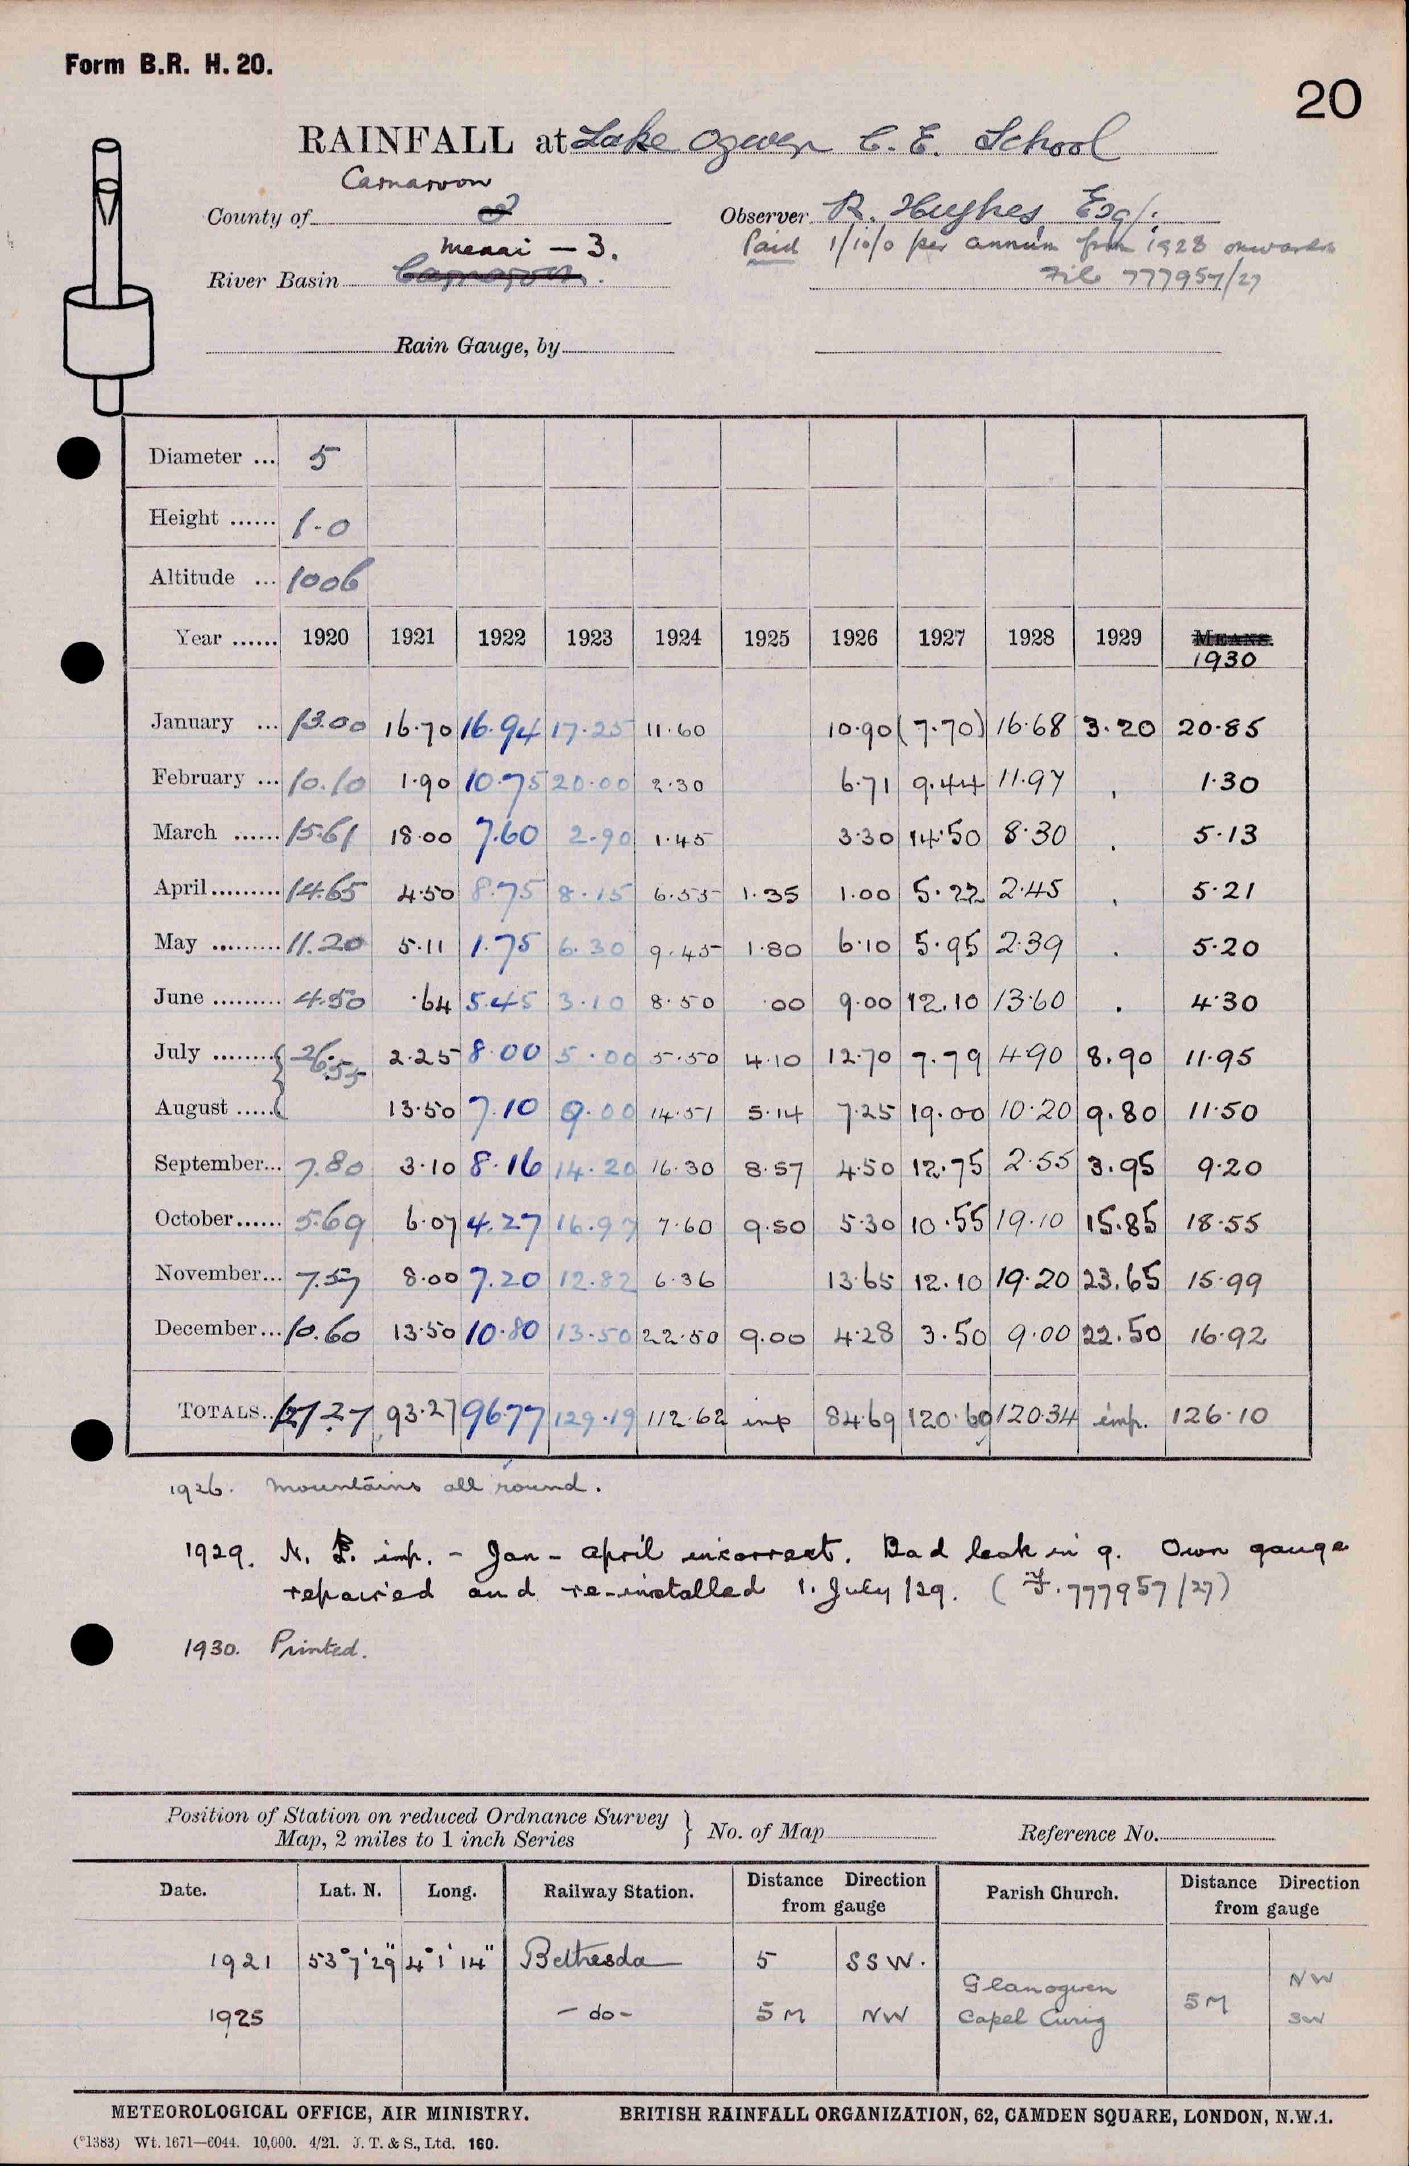 Form B.R. H. 20.
20
RAINFALL at Lake Ogwen C. E. School
Carnarvon
County of
Observer R. Hughes, Esq/.
Menai — 3.
Paid 1/10/0 per annum from 1928 onwards
River Basin Carnarvon.
File 777957/27
Rain Gauge, by
Diameter ... 5
Height ...... 1-0
Altitude ... 1006
Year ...... 1920 1921 1922 1923 1924 1925 1926 1927 1928 1929 MEANS.
1930
January ... 13.00 16.70 16.94 17.25 11.60 10.90 (7.70) 16.68 3.20 20.85
February ... 10.10 1.90 10.75 20.00 2.30 6.71 9.44 11.97 . 1.30
March ...... 15.61 18.00 7.60 2.90 1.45 3.30 14.50 8.30 . 5.13
April......... 14.65 4.50 8.75 8.15 6.55 1.35 1.00 5.22 2.45 . 5.21
May ......... 11.20 5.11 1.75 6.30 9.45 1.80 6.10 5.95 2.39 . 5.20
June ......... 4.50 .64 5.45 3.10 8.50 .00 9.00 12.10 13.60 . 4.30
July ........ { 26.55 2.25 8.00 5.00 5.50 4.10 12.70 7.79 4.90 8.90 11.95
August ..... 13.50 7.10 9.00 14.51 5.14 7.25 19.00 10.20 9.80 11.50
September... 7.80 3.10 8.16 14.20 16.30 8.57 4.50 12.75 2.55 3.95 9.20
October...... 5.69 6.07 4.27 16.97 7.60 9.50 5.30 10.55 19.10 15.85 18.55
November... 7.57 8.00 7.20 12.82 6.36 13.65 12.10 19.20 23.65 15.99
December... 10.60 13.50 10.80 13.50 22.50 9.00 4.28 3.50 9.00 22.50 16.92
TOTALS.. 127.27 93.27 96.77 129.19 112.62 imp 84.69 120.60 120.34 imp. 126.10
1926. Mountains all round.
1929. N. P. imp. - Jan - April incorrect. Bad leak in g. Own gauge
repaired and re-installed 1. July/29. (F.777957/27)
1930. Printed.
Position of Station on reduced Ordnance Survey
Map, 2 miles to 1 inch Series } No. of Map Reference No.
Date. Lat. N. Long. Railway Station. Distance Direction from gauge Parish Church. Distance Direction from gauge
1921 53°7'29" 4°1'14" Bethesda 5 SSW.
Glanogwen NW
1925 - do - 5M NW Capel Curig 5M SW
METEOROLOGICAL OFFICE, AIR MINISTRY. BRITISH RAINFALL ORGANIZATION, 62, CAMDEN SQUARE, LONDON, N.W.1.
(*1383) Wt. 1671—6044. 10,000. 4/21. J. T. & S., Ltd. 160.